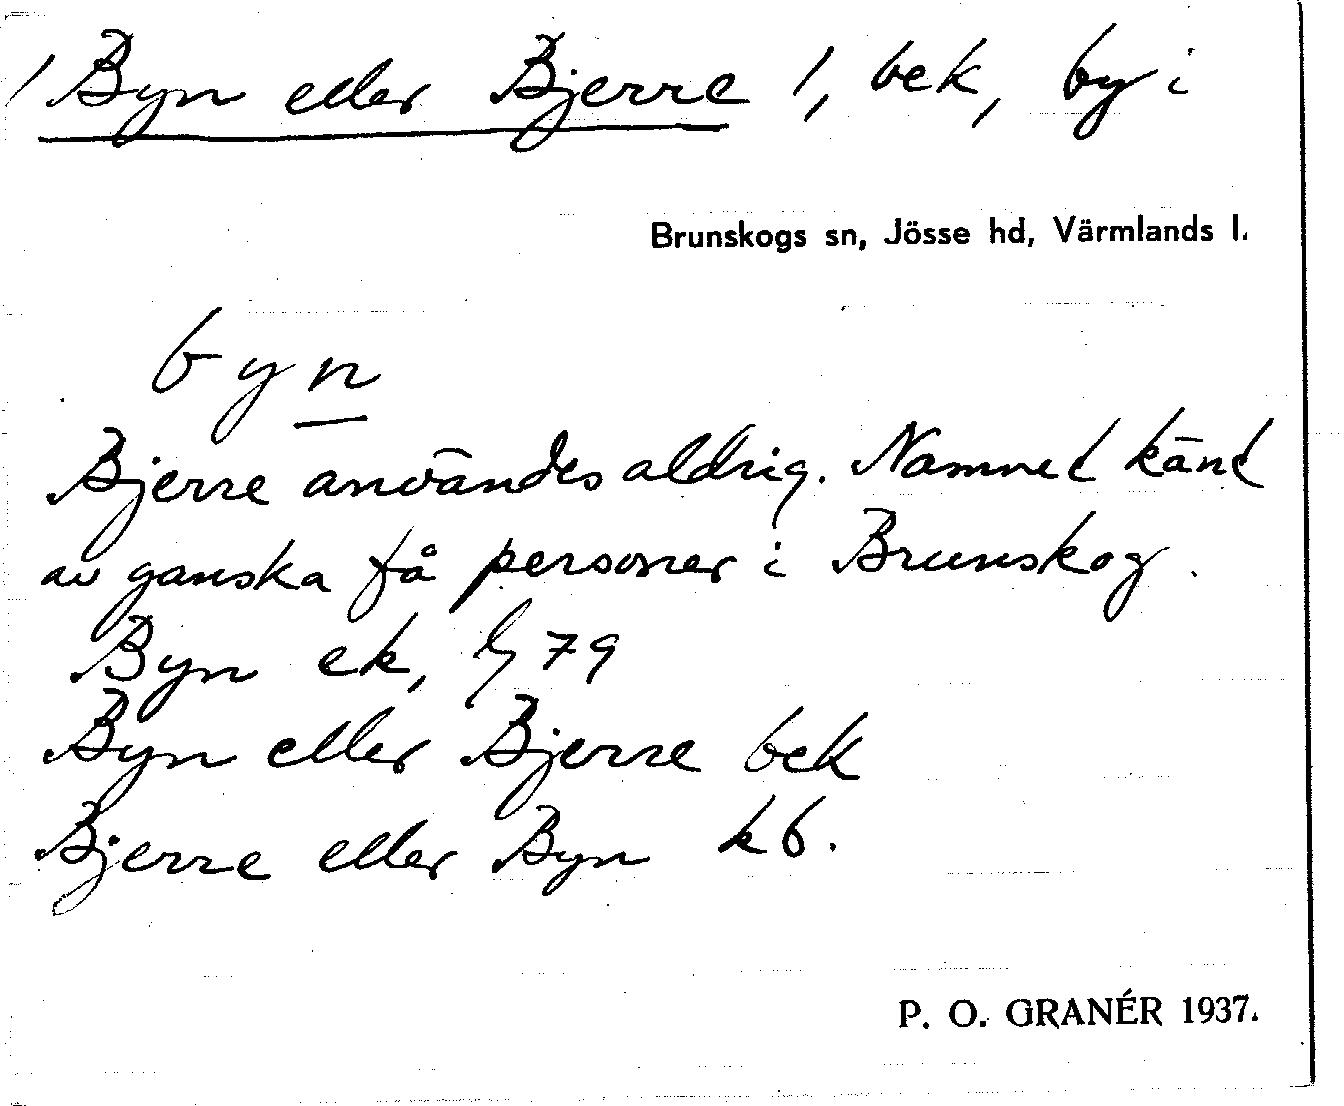 / Byn eller Bjerre /, bek, by i
Brunskogs sn, Jösse hd, Värmlands l.
byn
Bjerre användes aldrig. Namnet känt
av ganska få personer i Brunskog.
Byn ek, 79
Byn eller Bjerre bek
Bjerre eller Byn kb.
P. O. GRANÉR 1937.